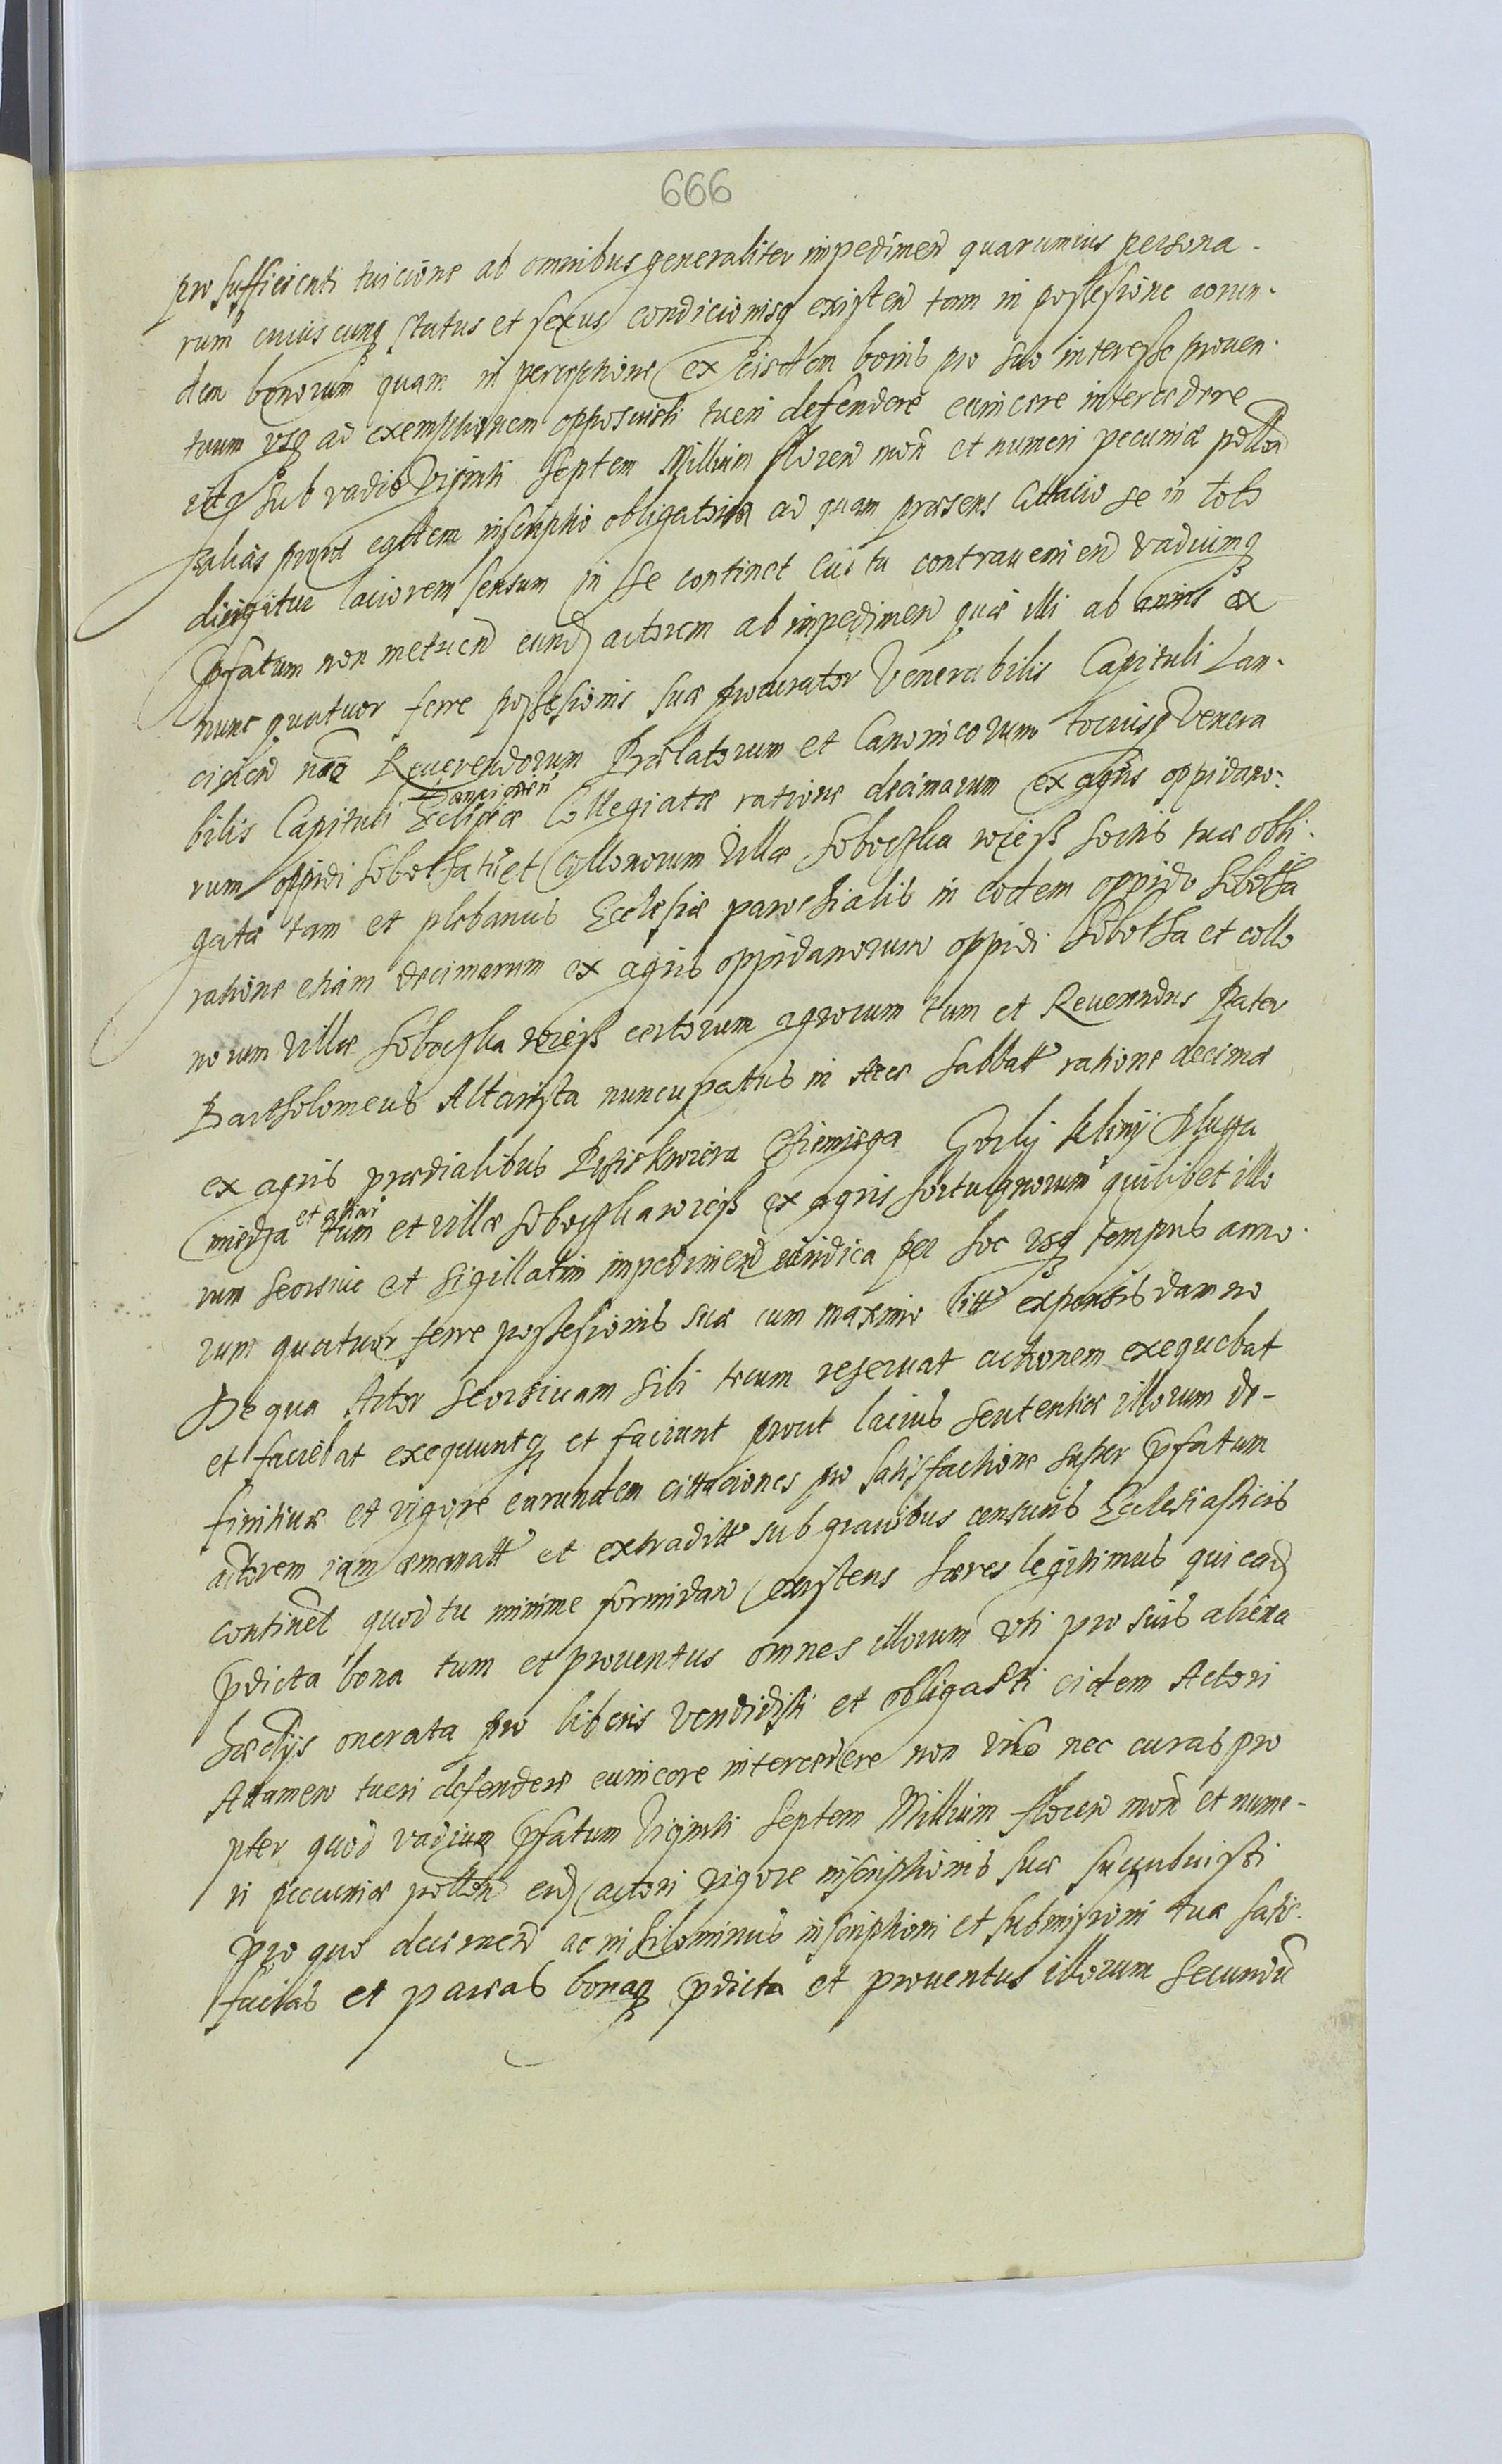 666
pro sufficienti tuicione ab omnibus generaliter impedimen quarumvis persona-
rum cuiuscunq status et sexus condicionisq existen tam in possesione eorun-
dem bonorum quam in perceptione ex eisdem bonis pro suo interesse proven-
tuum usq ad exemptionem opposuisti tueri defendere evincere intercedere
idq sub vadio Viginti Septem Millium floren mon et numeri pecuniæ pollon
salias prout eadem inscriptio obligatoria ad quam præsens Cittacio se in toto
dirigitur laciorem sensum in se continet Cui tu contravenien vadiumq
pfatum non metuen eund actorem ab impedimen quæ illi ab annis ex
nunc quatuor ferre possesionis suæ procurator Venerabilis Capituli Lan-
cicien noe Reverendorum Prælatorum et Canonicorum tociusq Venera
bilis Capituli Eclesiæ Lancicien Collegiatæ ratione decimarum ex agris oppidano-
rum oppidi Sobotha tu et Collonorum Villæ Soboczka wiess sortis tuæ obli-
gatæ tam et plebanus Ecclesiæ parochialis in eodem oppido Sobotha
ratione etiam decimarum ex agris oppidanorum oppidi Sobotha et collo
norum Villæ Soboczka wiess certorum agrorum tum et Reverendus Pater
Bartholomeus Altarista nuncupatus in Arce Sabbatt ratione decimæ
ex agris prædialibus Chemiega Gorky kliny Dluga
miedza et aliar tum et villæ Soboczka wiess ex agris quilibet illo
rum seorsive et sigillatim impedimen iuridica per hoc usq tempus anno-
rum quatuor ferre possesionis suæ cum maximo litt expensis damno
De qua Actor seorsivam sibi tecum reservat actionem exequebat
et faciebat exequuntq et faciunt prout lacius sententiæ illorum de-
finitivæ et vigore earundem cittaciones pro satisfactione super pfatum
actorem iam emanatt et extraditt sub gravibus censuris Ecclesiasticis
continet quod tu minime formidan existens hæres legitimus qui ead
pdicta bona tum et proventus omnes illorum uti pro suis aliena
hædys onerata pro liberis vendidisti et obligasti eidem Actori
Attamen tueri defendere evincere intercedere non vis nec curas pro
pter quod vadium pfatum Viginti Septem Millium floren mon et nume-
ri peccuniæ pollon eid actori vigore inscriptionis suæ succubuisti
pro quo decernen ac nihilominus inscriptioni et submissioni tuæ satis-
facias et pareas bonaq pdicta et proventus illorum secundu